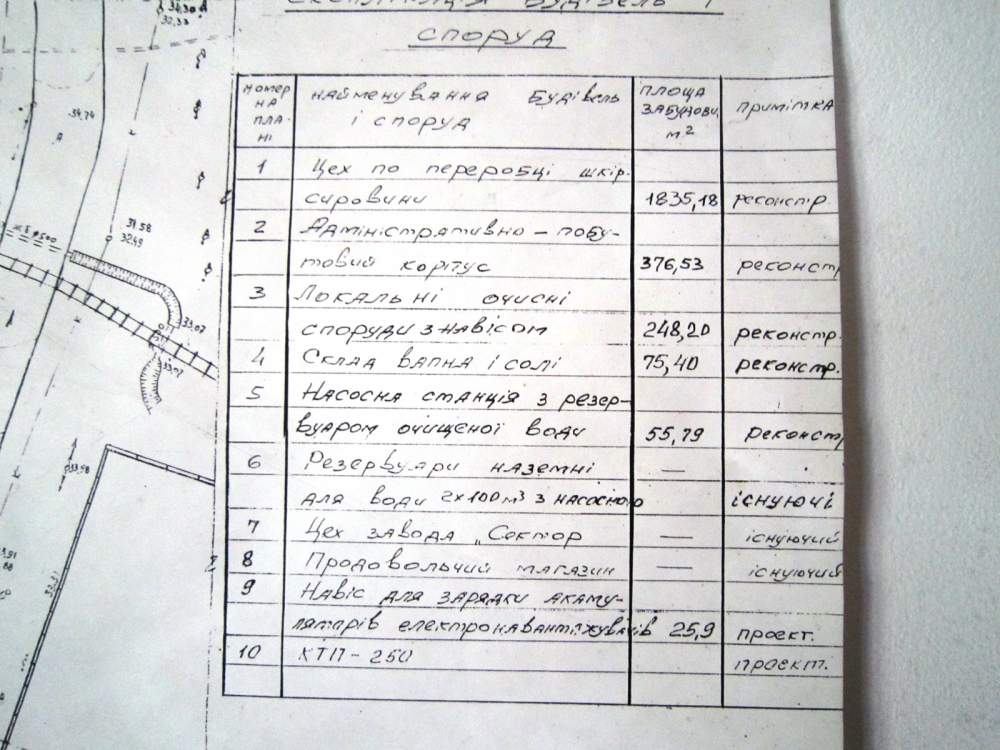 експлікація будівель і
споруд
номер на плані
найменування будівель і споруд
площа забудови, м²
примітка
1 Цех по переробці шкір.
сировини 1835,18 реконстр.
2 Адміністративно – побу-
товий корпус 376,53 реконстр
3 Локальні очисні
споруди з навісом 248,20 реконстр.
4 Склад вапна і солі 75,40 реконстр.
5 Насосна станція з резер-
вуаром очищеної води 55,79 реконстр
6 Резервуари наземні —
для води 2х100м³ з насосною існуючі
7 Цех завода „Сектор — існуючий
8 Продовольчий магазин — існуючий
9 Навіс для зарядки акаму-
ляторів електронавантажувачів 25,9 проект.
10 КТП – 250 проект.
34,30
32,33
34,74
34.58
32,49
33,07
33,98
33,91